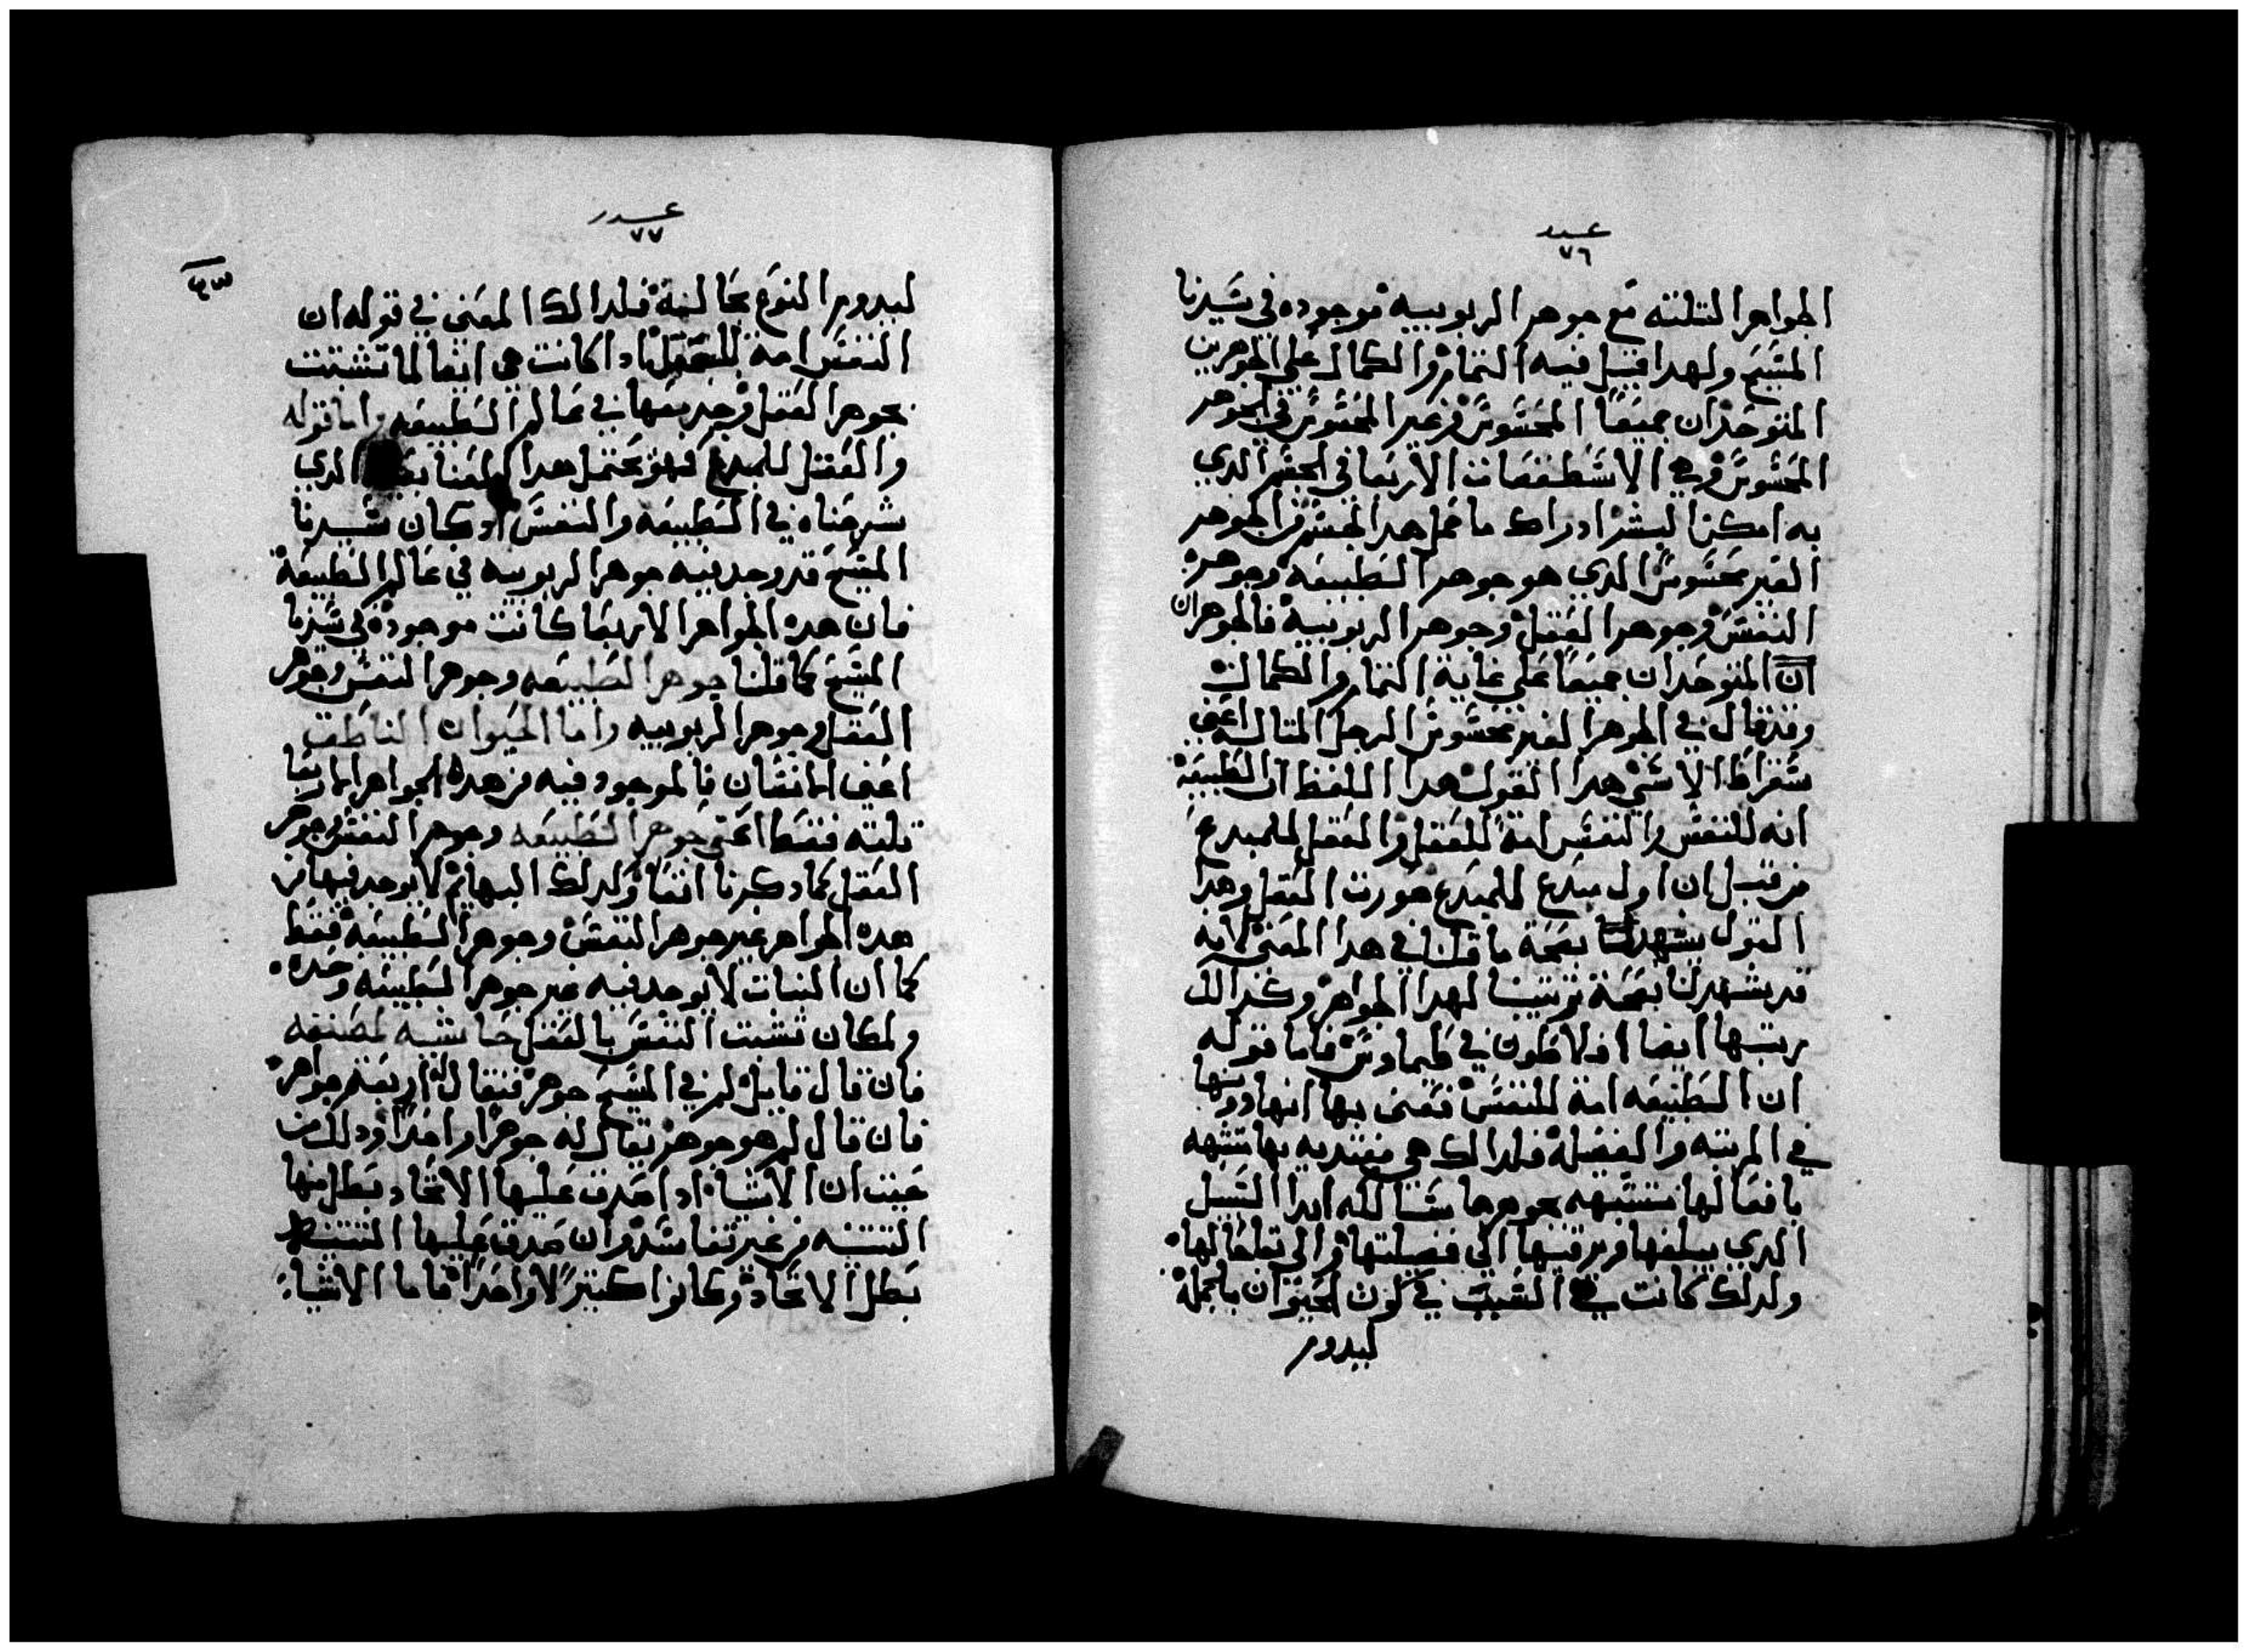 عدد
٧٦
الجواهر التلته مع جوهر الربوبيه موجوده في سيدنا
المسيح ولهدا قيل فيه التمام والكمال علي الجوهرين
المتوحدان جميعا المحسوس وغير المحسوس في الجوهر
المحسوس وهي الاسطقصات الاربعا في الجسم الدي
به امكن البشر ادراك ما عمل هدا الجسم من الجوهر
الغير محسوس الدي هو جوهر الطبيعه وجوهر
النفس وجوهر العقل وجوهر الربوبية فالجوهران
ان المتوحدان جميعا علي غاية التمام والكمال
وقد قال في الجوهر الغير محسوس الرجل المتاله اعني
سقراط الاسني هدا القول هدا اللفظ ان الطبيعة
انه للنفس والنفس امة للعقل والعقل للمبدع
من قبل ان اول مبدع للمبدع صورت العقل وهدا
القول يشهد لنا بصحة ما قلنا في هدا المعني لانه
قد يشهد لنا بصحة ترتيبنا لهدا الجواهر وكدالك
رتبها ايضا افلاطون في طيماوس فاما قوله
ان الطبيعه امة للنفس فعني بها انها دونها
في المرتبه والفضلة فلدالك هي مقتديه بها متشبهه
بافعالها متشبهه بجوهرها شتا لله ابدا السبل
الدي يبلغها ويرقيها الي فضيلتها والي تمام حالها
ولدلك كانت هي السبب في كون الحيوان بالجملة
ليدوم
عدد
٧٧
ليدوم النوع بحالية فلدالك المعني في قوله ان
النفس امة للعقل ادا كانت هي ايضا لما تشبتت
بجوهر العقل وجد بعها في عالم الطبيعه واما قوله
والعقل للمبدع فهو يحتمل هدا المعنا الدي
شرحناه في الطبيعه والنفس اد كان سيدنا
المسيح قد وجد فيه جوهر الربوبيه في عالم الطبيعة
فان هده الجواهر الاربعا كانت موجودة في سيدنا
المسيح كما قلنا جوهر الطبيعه وجوهر النفس وجوهر
العقل وجوهر الربوبيه واما الحيوان الناطق
اعني الانسان فالموجود فيه من هده الجواهر الاربعا
تلته فقط اعني جوهر الطبيعه وجوهر النفس وجوهر
العقل كما دكرنا انفا ولدلك البهايم لا يوجد فيها من
هده الجواهر غير جوهر النفس وجوهر الطبيعة فقط
كما ان النبات لا يوجد فيه غير جوهر الطبيعه وحده
ولمكان تشبت النفس بالعقل
فان قال قايل لم في المسيح جوهر فيقال له اربعة جواهر
فان قال لم هو جوهر يقال له جوهرا واحدا ودلك من
حيت ان الاشيا ادا صدق عليها الاتحاد بطل منها
التتنيه من غير تفاسد وان صدق عليها
بطل الاتحاد وكانوا كتيرا لا واحدا فاما الاشيا